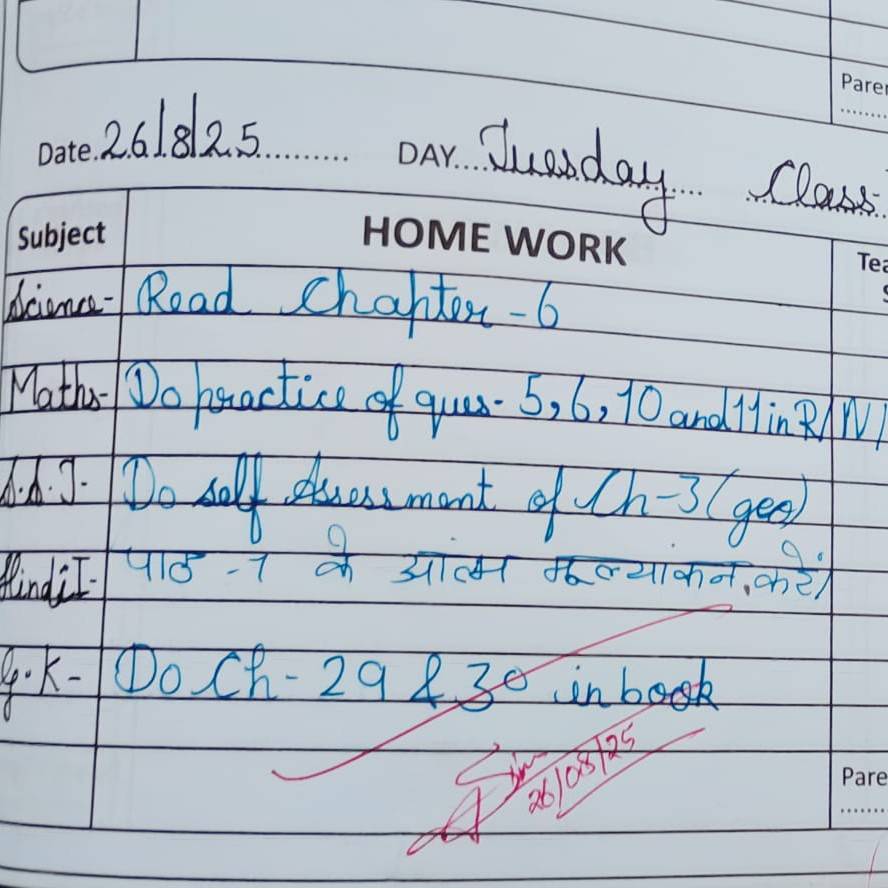 Paren
Date. 26/8/25 DAY... Tuesday Class
Subject HOME WORK Tea
Science- Read Chapter-6
Maths- Do practice of ques- 5, 6, 10 and 11 in R/N/
S.S.T- Do self Assessment of Ch-3 (geo)
Hindi I- पाठ -1 के आत्म मूल्यांकन करें।
G.K- Do Ch- 29 & 30 in book
26/08/25
Pare